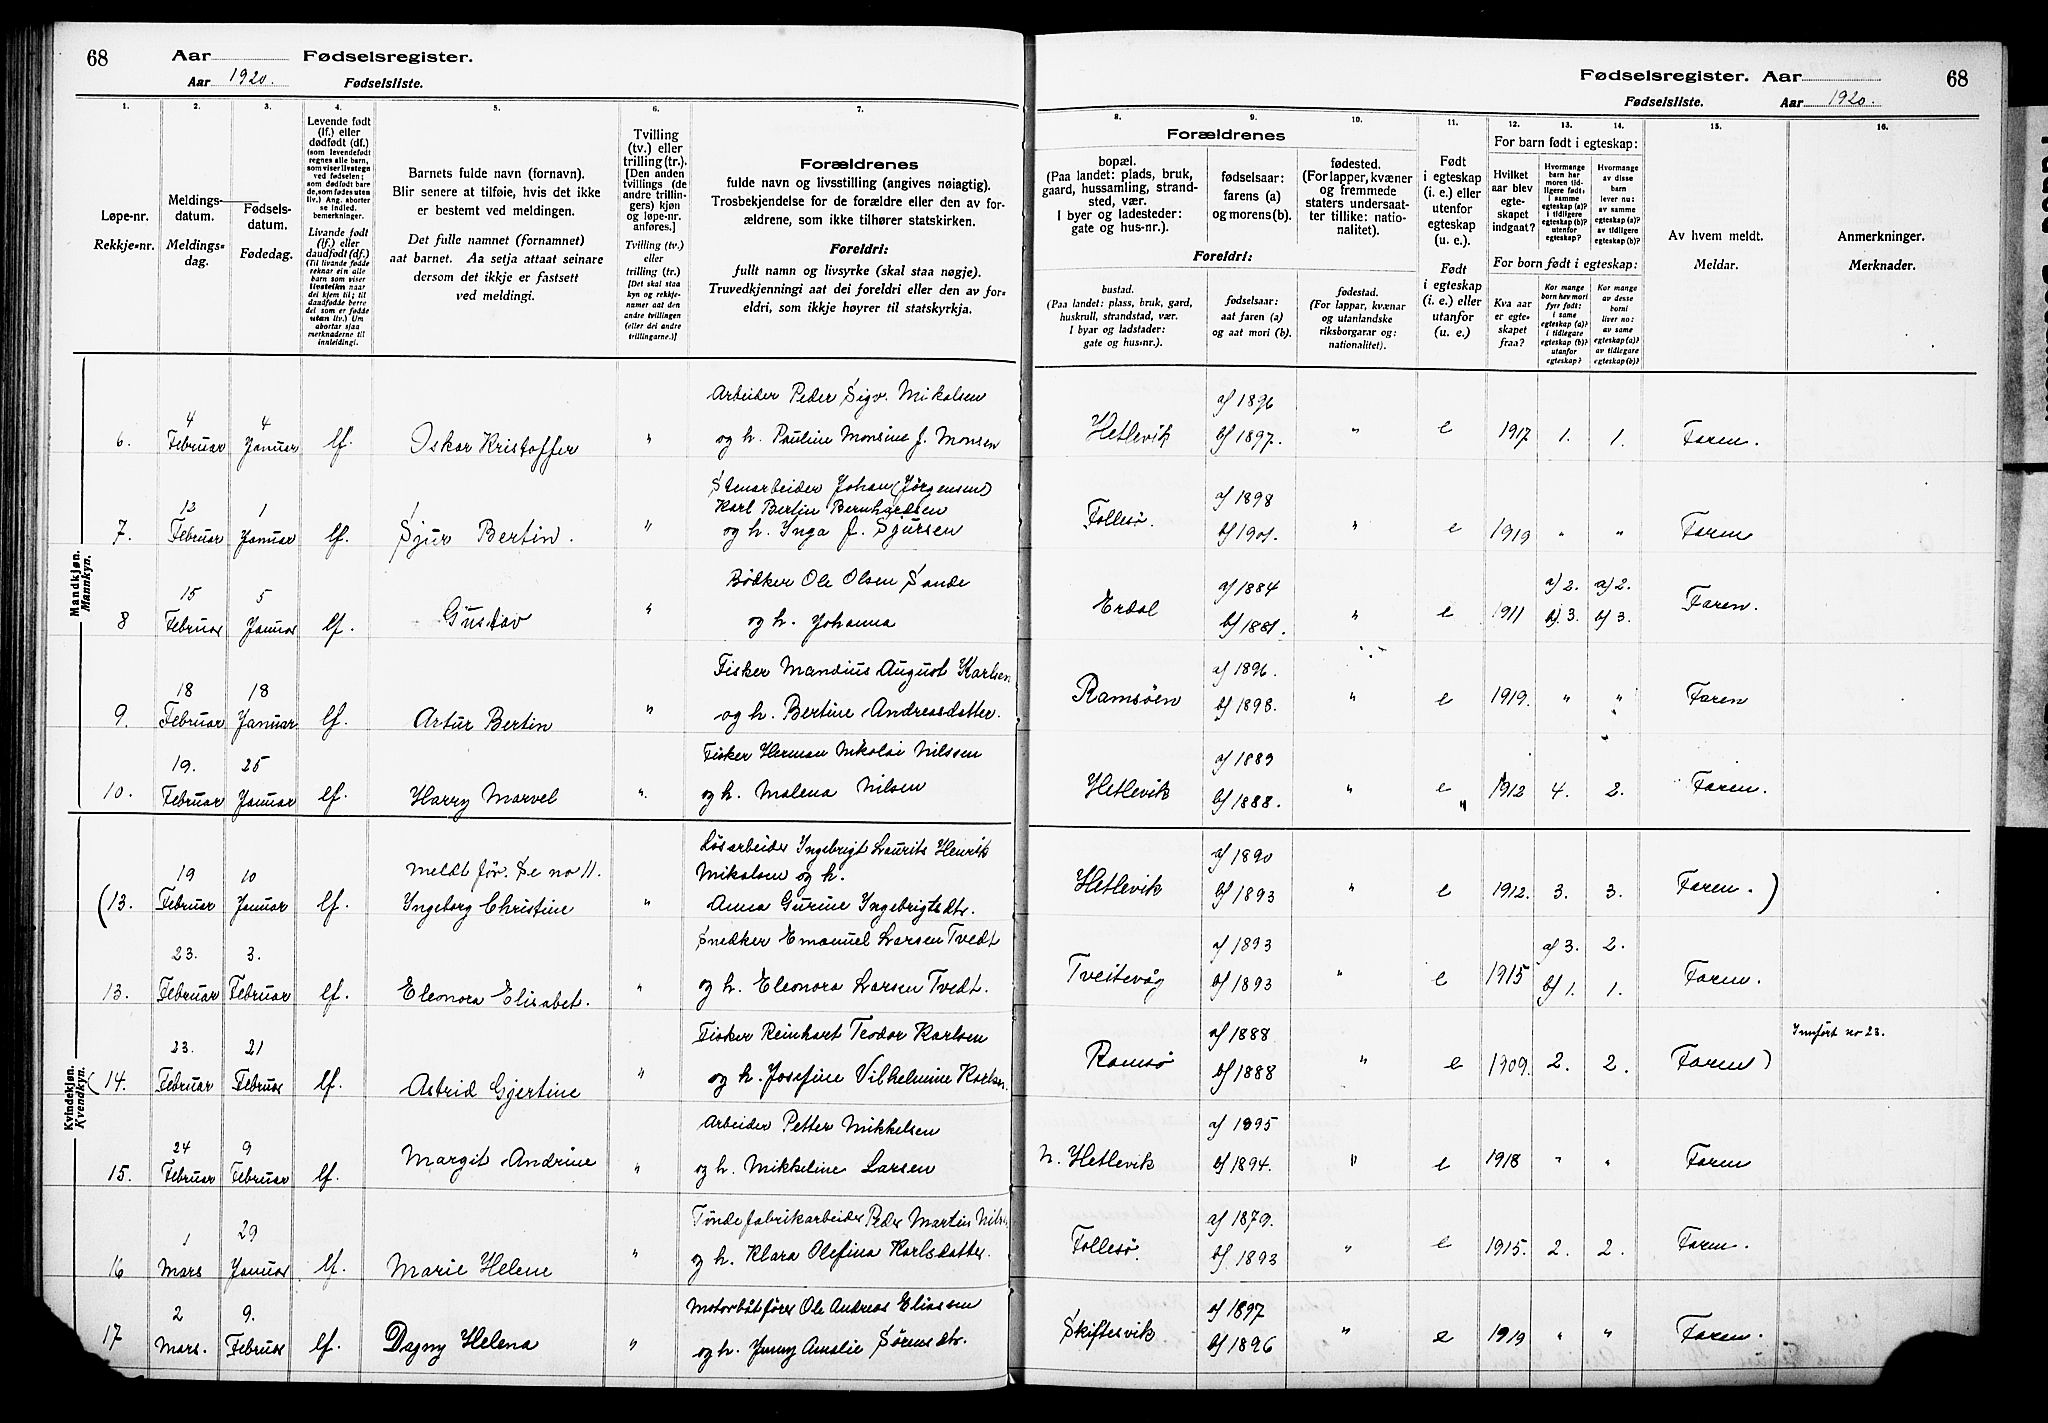 68 Aar Fødselsregister.
Aar 1920. Fødselsliste.
1. 2. 3. 4. 5. 6. 7.
Løpe-nr.
Rekkje-nr.
Meldings-
datum.
Meldings-
dag.
Fødsels-
datum.
Fødedag.
Levende født
(lf.) eller
dødfødt (df.)
(som levendefødt
regnes alle barn,
som viser livstegn
ved fødselen;
som dødfødt bare
de, som fødes uten
liv.) Ang. aborter
se indled.
bemerkninger.
Livande født
(lf.) eller
daudfødt (df.)
(Til livande fødde
reknar ein alle
barn som viser
livsteikn naar
dei kjem til; til
daudfødde berre
dei som er fødde
utan liv.) Um
abortar sjaa
merknaderne til
innleidingi.
Barnets fulde navn (fornavn).
Blir senere at tilføie, hvis det ikke
er bestemt ved meldingen.
Det fulle namnet (fornamnet)
aat barnet. Aa setja attaat seinare
dersom det ikkje er fastsett
ved meldingi.
Tvilling
(tv.) eller
trilling (tr.).
[Den anden
tvillings (de
andre trillin-
gers) kjøn
og løpe-nr.
anføres.]
Tvilling (tv.)
eller
trilling (tr.)
[Det skal staa
kyn og rekkje-
numer aat den
andre tvillingen
(eller dei andre
trillingarne.)]
Forældrenes
fulde navn og livsstilling (angives nøiagtig).
Trosbekjendelse for de forældre eller den av for-
ældrene, som ikke tilhører statskirken.
Foreldri:
fullt namn og livsyrke (skal staa nøgje).
Truvedkjenningi aat dei foreldri eller den av for-
eldri, som ikkje høyrer til statskyrkja.
Mandkjøn.
Mannkyn.
6. 4 Februar 4 Januar lf. Oskar Kristoffer " Arbeider Peder Sigv. Mikalsen
og h. Pauline Monsine f. Monsen
7. 12 Februar 1 Januar lf. Sjur Bertin. " Stenarbeider Johan (Jørgensen)
Karl Bertin Bernhardsen
og h. Inga f. Sjursen
8 15 Februar 5 Januar lf. Gustav " Bödker Ole Olsen Sande
og h. Johanna
9. 18 Februar 18 Januar lf. Artur Bertin " Fisker Mandius August Karlsen
og h. Bertine Andreasdatter.
10. 19. Februar 25 Januar lf. Harry Marvel ". Fisker Herman Nikolai Nilssen
og h. Malena Nilsen
Kvindekjøn.
Kvendkyn.
(13. 19 Februar 10 Januar lf. Meldt för. Se no 11.
Ingeborg Christine " Løsarbeider Ingebrigt Laurits Henrik
Mikalsen og h.
Anna Gurine Ingebrigtsdtr.
13. 23. Februar 3. Februar lf. Eleonora Elisabet. " Snedker Emanuel Larsen Tvedt
og h. Eleonora Larsen Tvedt.
(14. 23. Februar 21 Februar lf. Astrid Gjertine " Fisker Reinhart Teodor Karlsen
og h. Josefine Vilhelmine Karlsen.
15. 24 Februar 9 Februar lf. Margit Andrine " Arbeider Petter Mikkelsen
og h. Mikkeline Larsen
16 1 Mars 29 Januar lf. Marie Helene " Tøndefabrikarbeider Peder Martin Nils
og h. Klara Olefina Karlsdatter.
17 2 Mars. 9. Februar lf. Dagny Helena " Motorbåtfører Ole Andreas Eliassen
og h. Jenny Amalie Sørensdtr.
Fødselsregister. Aar 68
Fødselsliste. Aar 1920.
8. 9. 10. 11. 12. 13. 14. 15. 16.
Forældrenes
bopæl.
(Paa landet: plads, bruk,
gaard, hussamling, strand-
sted, vær.
I byer og ladesteder:
gate og hus-nr.).
fødselsaar:
farens (a)
og morens (b).
fødested.
(For lapper, kvæner
og fremmede
staters undersaat-
ter tillike: natio-
nalitet).
Foreldri:
bustad.
(Paa landet: plass, bruk, gard,
huskrull, strandstad, vær.
I byar og ladstader:
gate og hus-nr.).
fødselsaar:
aat faren (a)
og aat mori (b).
fødestad.
(For lappar, kvænar
og utanlandske
riksborgarar og:
nationalitet).
Født
i egteskap
(i. e.) eller
utenfor
egteskap
(u. e.).
Født
i egteskap
(i. e.) eller
utanfor
(u. e.)
For barn født i egteskap:
Hvilket
aar blev
egte-
skapet
indgaat?
Hvormange
barn har
moren tid-
ligere født:
i samme
egteskap (a)?
i tidligere
egteskap (b)?
utenfor
egteskap?
Hvormange
av disse
barn
lever nu:
av samme
egteskap (a)?
av tidligere
egteskap (b)?
For born født i egteskap:
Kva aar
er egte-
skapet
fraa?
Kor mange
born hev mori
fyrr født:
i same
egteskap (a)?
i tidlegare
egteskap (b)?
utanfor
egteskap?
Kor mange
av desse
borni
liver no:
av same
egteskap (a)?
av tidlegare
egteskap (b)?
Av hvem meldt.
Meldar.
Anmerkninger.
Merknader.
Hetlevik a) 1896 b) 1897. " e 1917 1. 1. Faren.
Follesö. a) 1898 b) 1901. " e 1919 " " Faren
Erdal a) 1884 b) 1881. " e 1911 a) 2. b) 3. a) 2. b) 3. Faren.
Ramsöen a) 1896. b) 1898. " e 1919. " " Faren
Hetlevik a) 1889 b) 1888. " e 1912 4. 2. Faren.
Hetlevik a) 1890 b) 1893 " e 1912. 3. 3. Faren.)
Tveitevåg a) 1893 b) 1893 " e 1915 a) 3. b) 1. 2. 1. Faren.
Ramsö a) 1888 b) 1888 " e 1909. 2. 2. Faren) Innfört no 23.
N. Hetlevik a) 1895 b) 1894. " e 1918 " " Faren
Follesö. a) 1879. b) 1893 " e 1915. 2. 2. Faren.
Skiftesvik a) 1897 b) 1896 " e 1919 " " Faren.